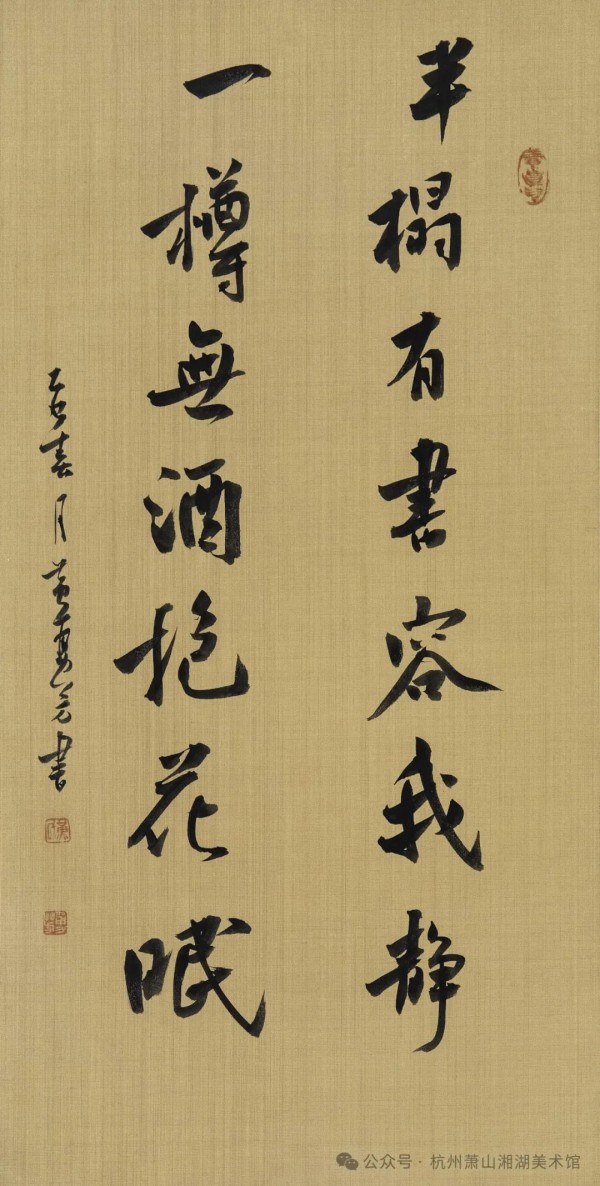 半榻有書容我静
一樽無酒抱花眠
乙巳春月黄勇芳書
公众号·杭州萧山湘湖美术馆